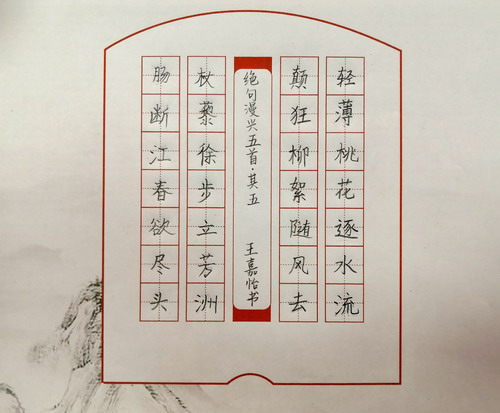 肠断江春欲尽头
杖藜徐步立芳洲
绝句漫兴五首·其五 王嘉怡书
颠狂柳絮随风去
轻薄桃花逐水流